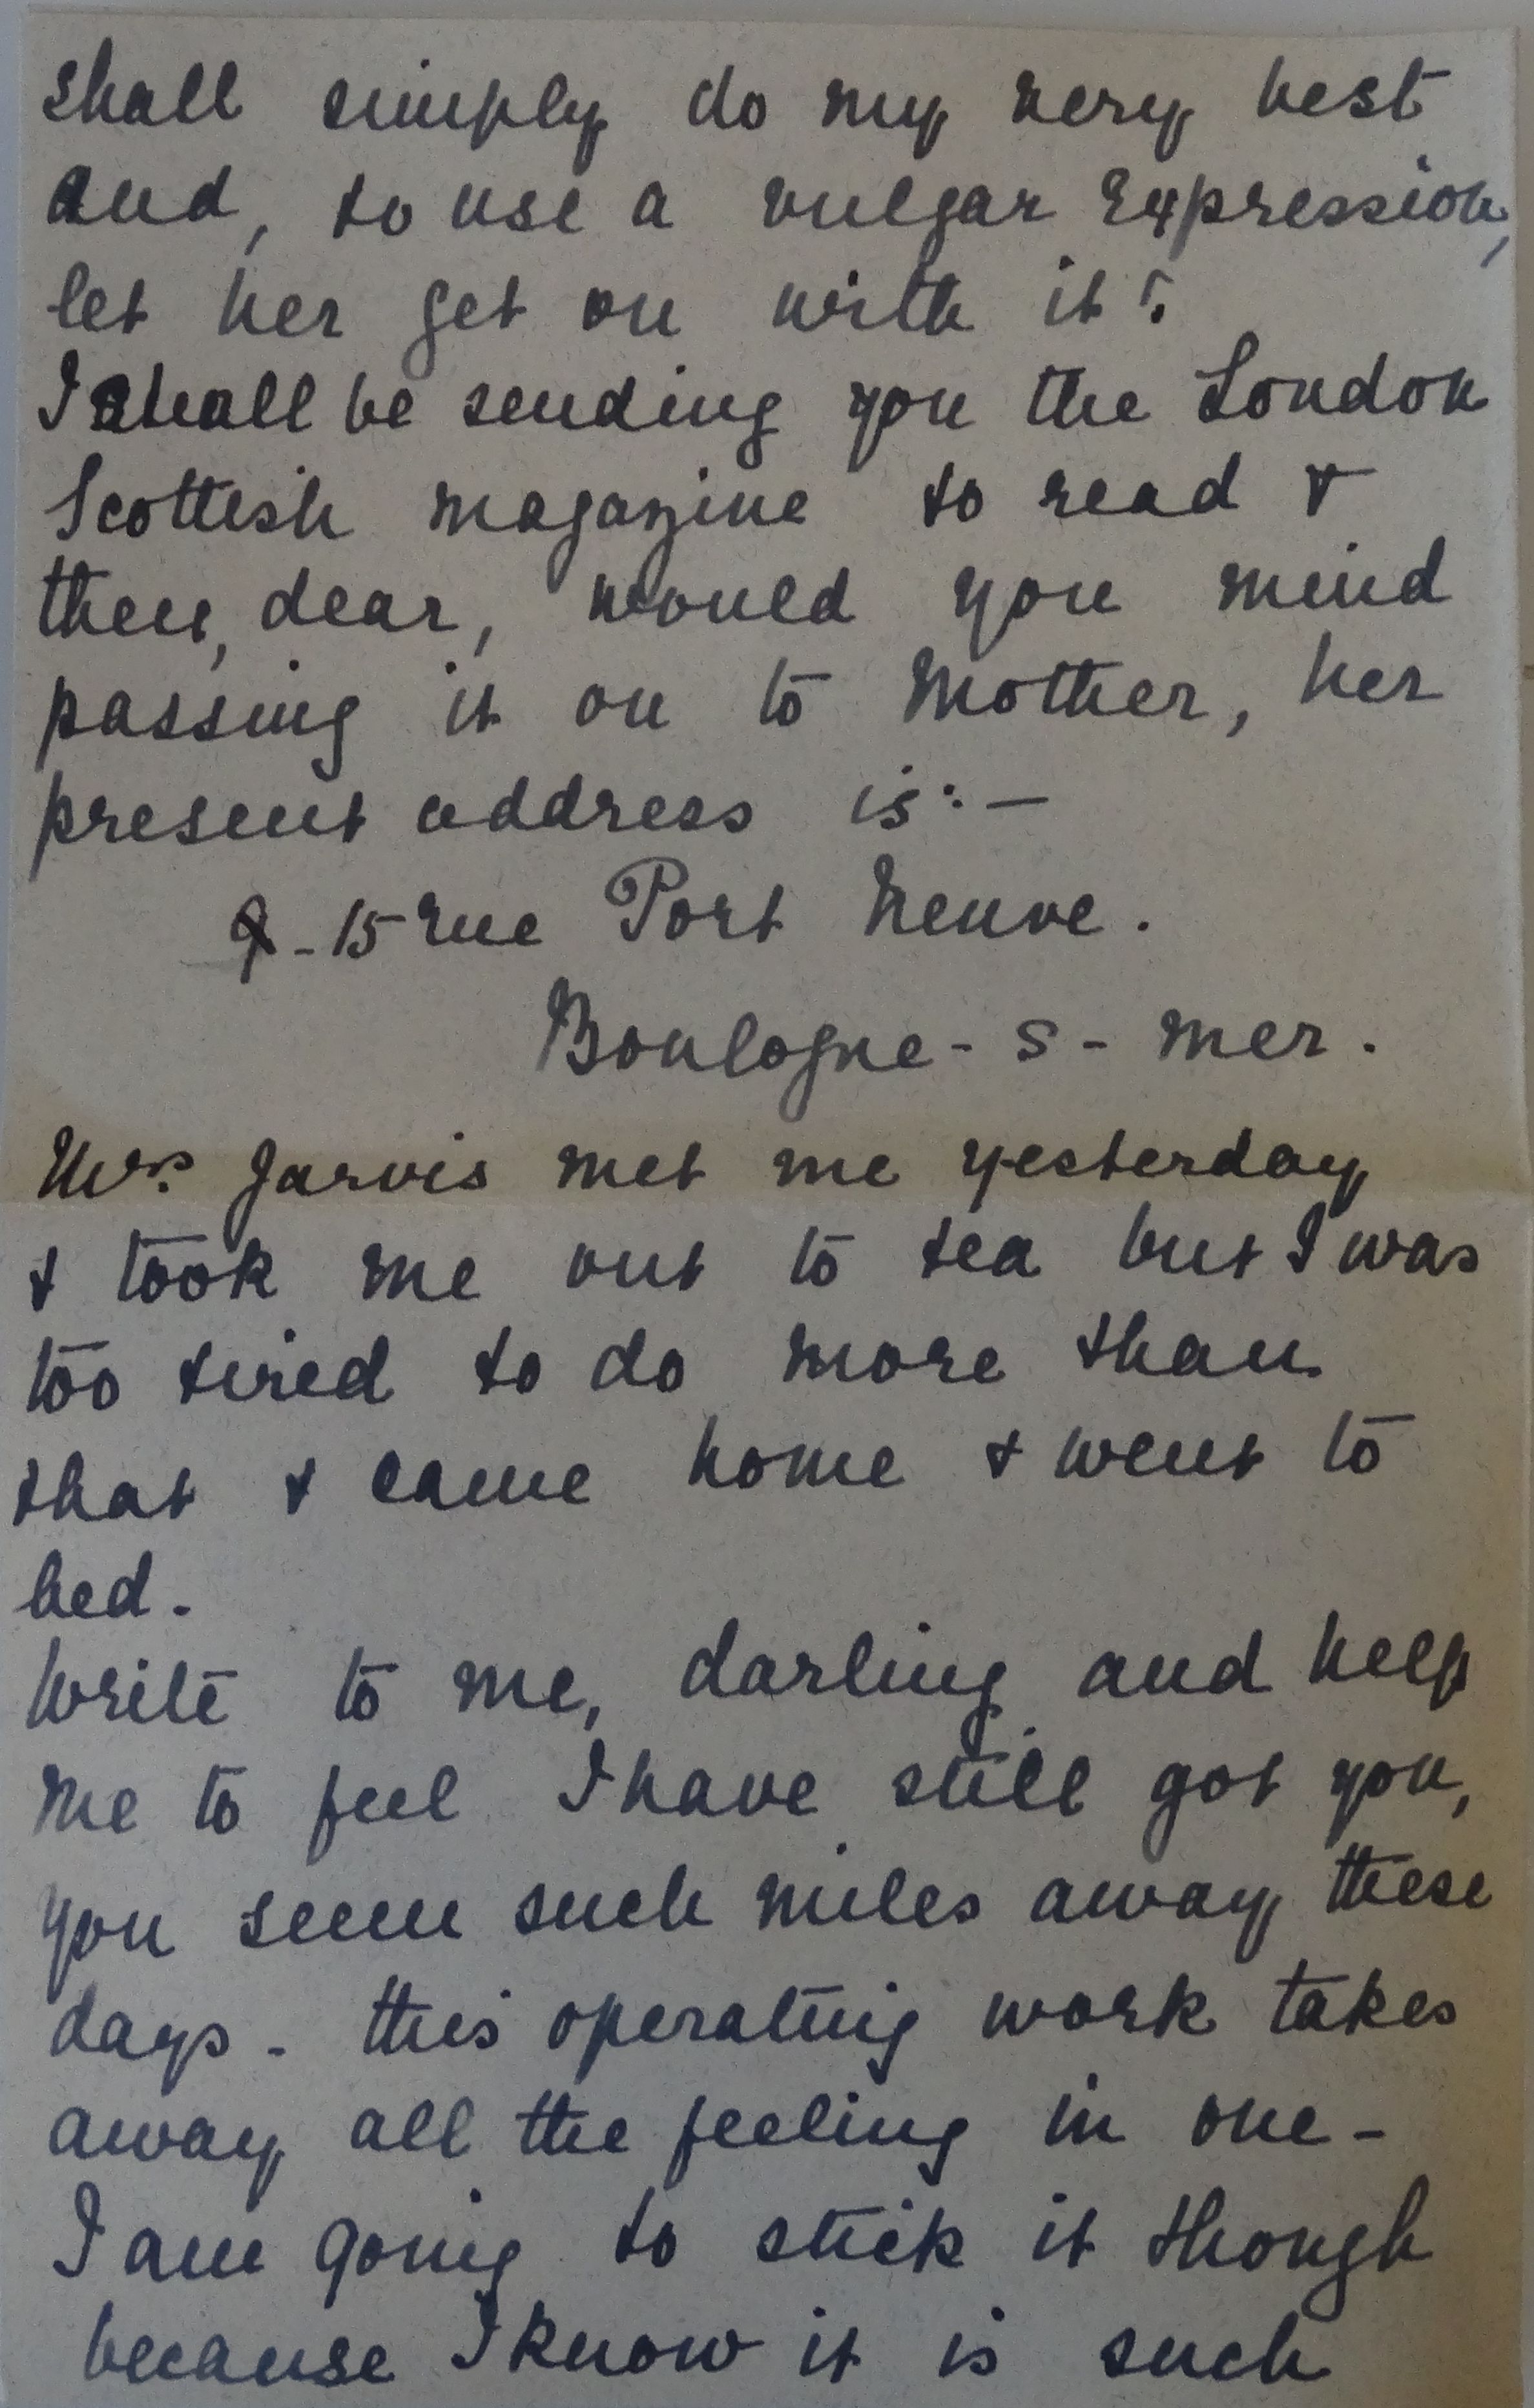 shall simply do my very best
and, to use a vulgar expression,
let her get on with it!.
I shall be sending you the London
Scottish magazine to read &
then, dear, would you mind
passing it on to Mother, her
present address is:—
15 rue Port Neuve.
Boulogne - s - mer.
Mrs. Jarvis met me yesterday
& took me out to tea but I was
too tired to do more than
that & came home & went to
bed.
Write to me, darling and help
me to feel I have still got you,
you seem such miles away these
days - this operating work takes
away all the feeling in one -
I am going to stick it though
because I know it is such